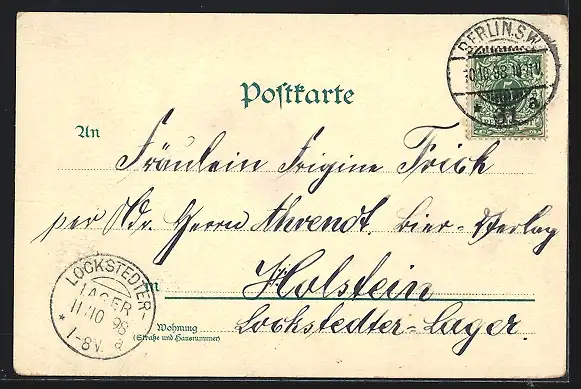 BERLIN.S.W.
10.10.98
Postkarte
An
Fräulein Frigine Frick
per Adr. Herrn Ahrendt. Bier-Verlag
in Holstein
Lockstedter-Lager.
Wohnung
(Straße und Hausnummer)
LOCKSTEDTER
LAGER
11/10 98
* 1-8V. a